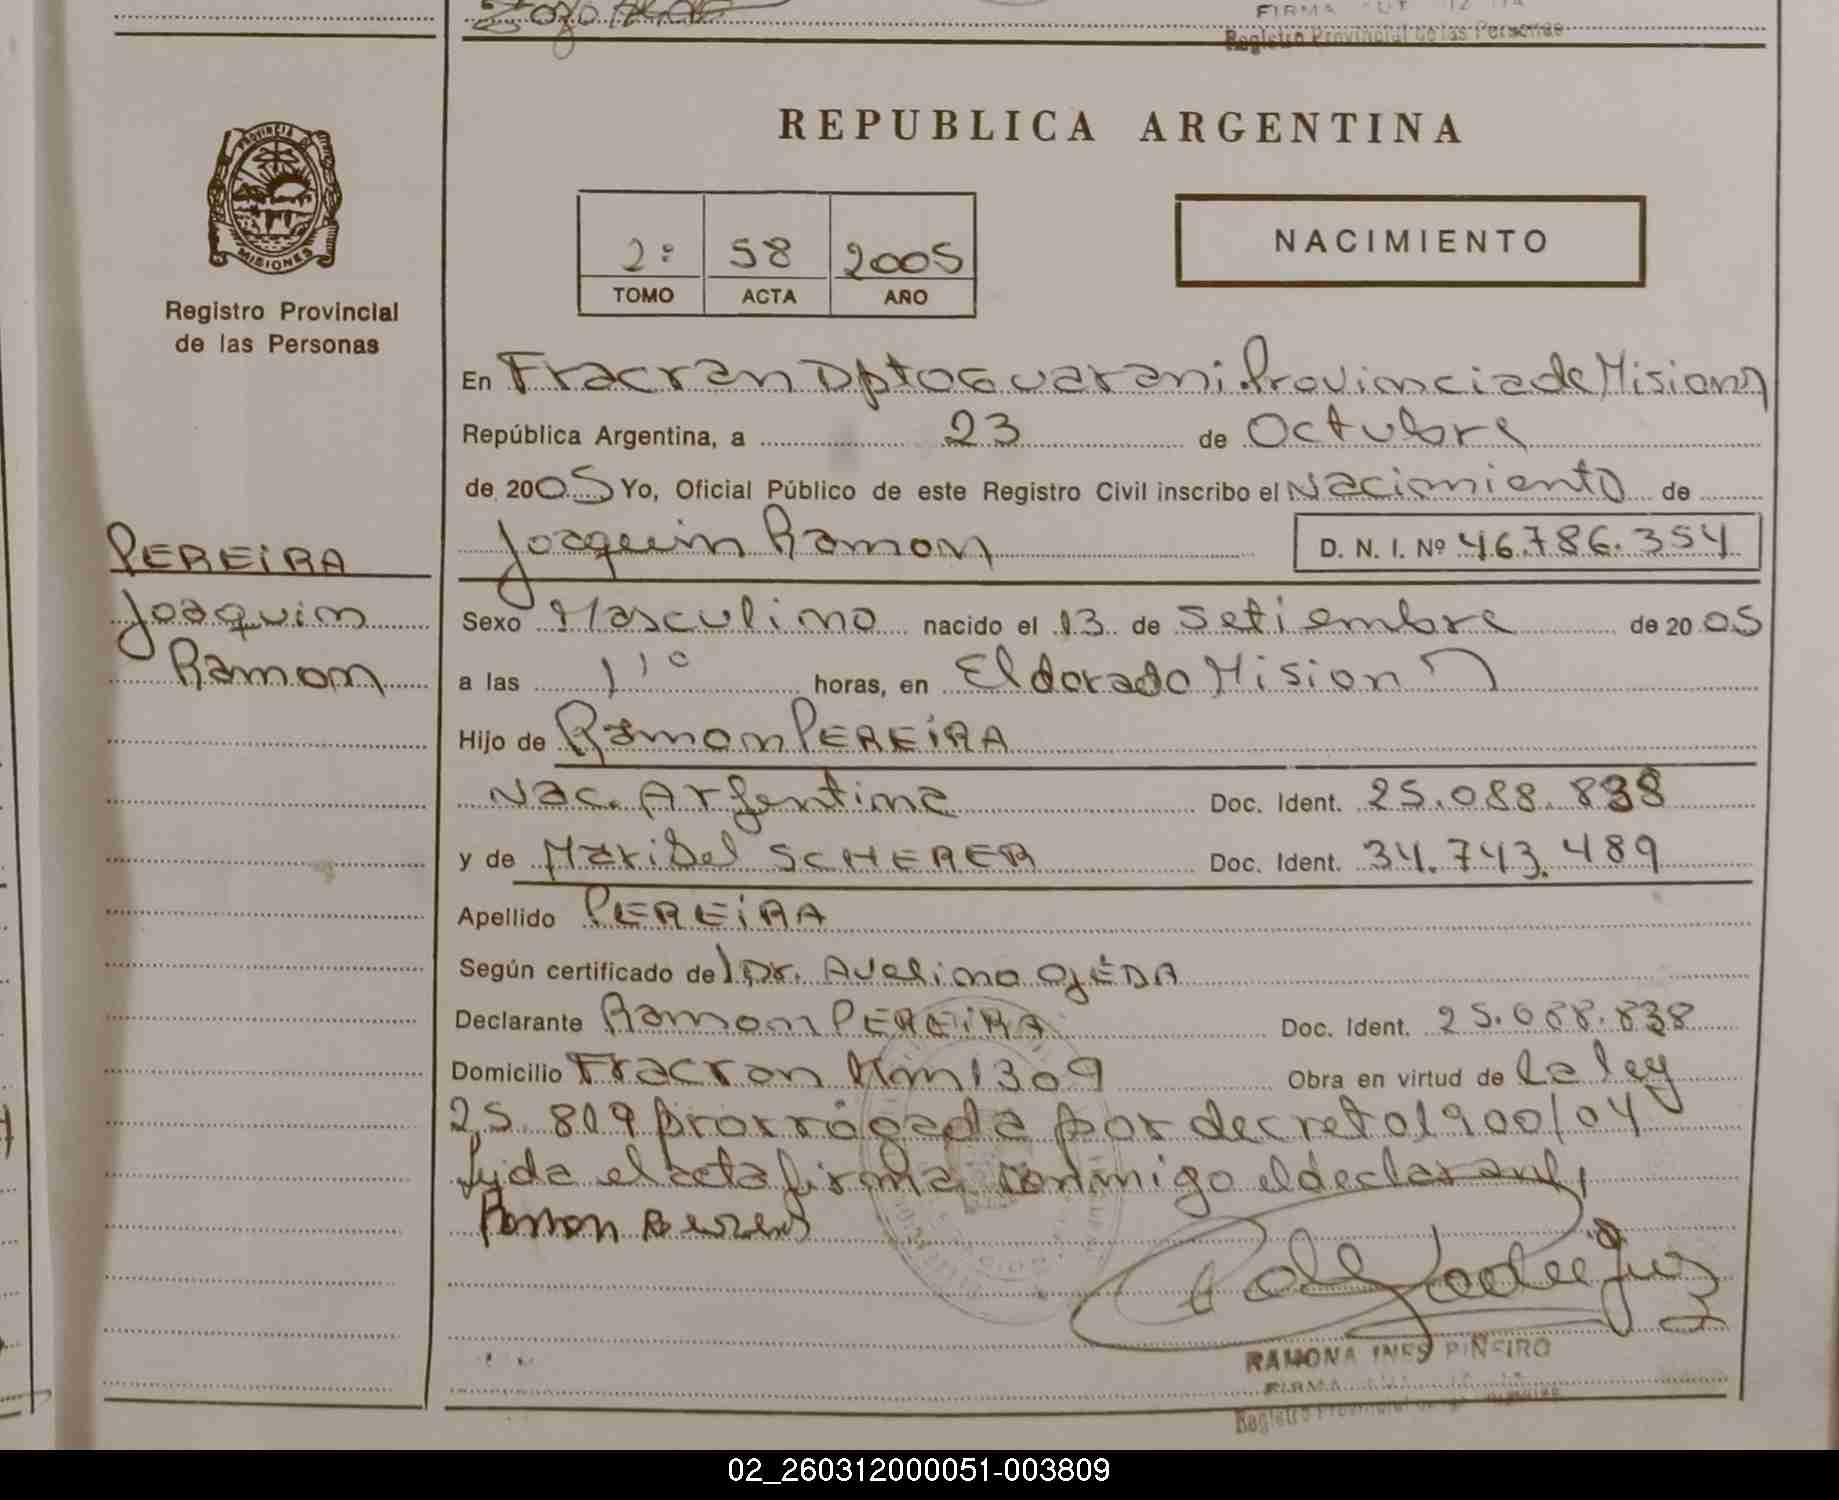 Registro Provincial de las Personas
REPUBLICA ARGENTINA
PROVINCIA DE
MISIONES
Registro Provincial
de las Personas
2º 58 2005
TOMO ACTA AÑO
NACIMIENTO
PEREiRA
Joaquin
Ramon
En Fracran Dpto Guarani Provincia de Misiones
República Argentina, a 23 de Octubre
de 2005 Yo, Oficial Público de este Registro Civil inscribo el Nacimiento de
Joaquin Ramon D. N. I. Nº 46.786.354
Sexo Masculino nacido el 13 de Setiembre de 2005
a las 11º horas, en Eldorado Misiones
Hijo de Ramon PEREiRA
Nac. Argentina Doc. Ident. 25.088.838
y de Maribel SCHERER Doc. Ident. 34.743.489
Apellido PEREiRA
Según certificado del Dr. Avelino OJEDA
Declarante Ramon PEREiRA Doc. Ident. 25.088.838
Domicilio Fracran Km 1309 Obra en virtud de la ley
25.819 prorrogada por decreto 1900/04
Lyda el acta firma conmigo el declarante
Ramon
RAMONA INES PIÑEIRO
FIRMA
Registro Provincial de las Personas
02_260312000051-003809